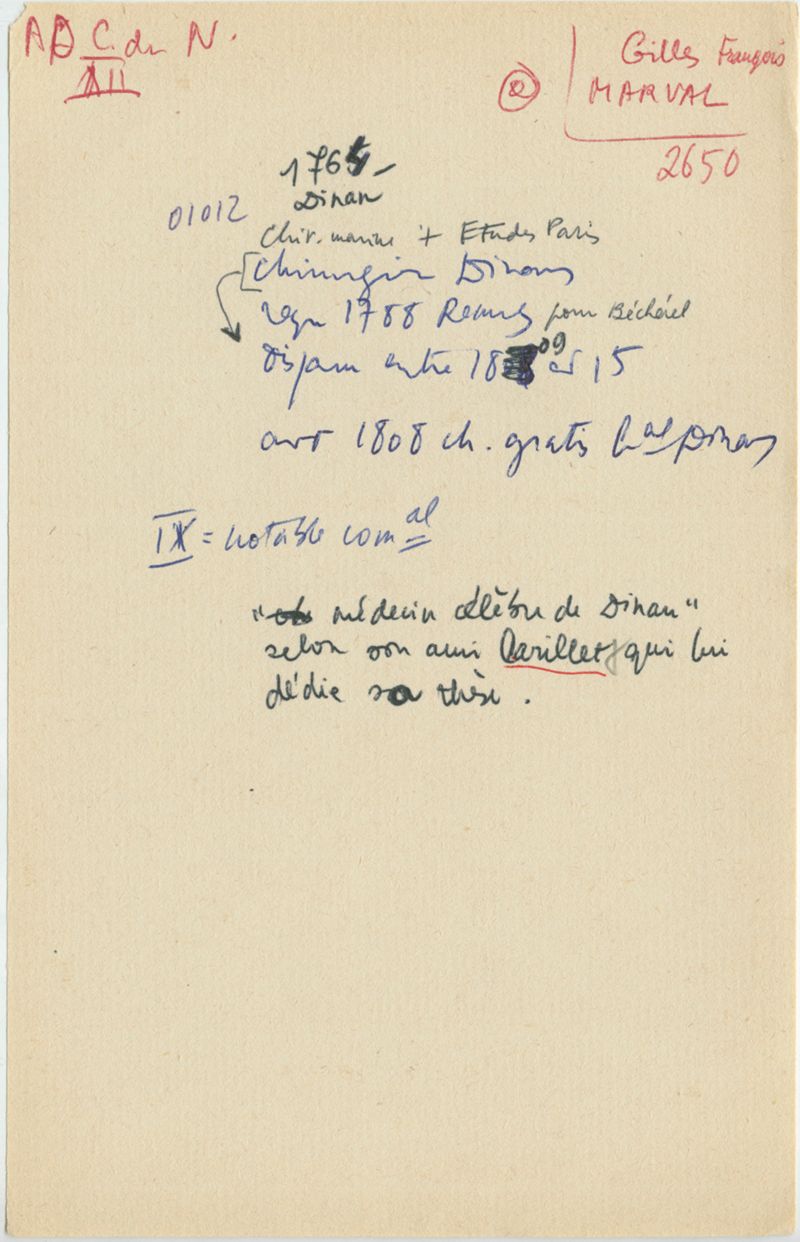 AD C. du N.
XII
Gilles François
MARVAL
2650
1764 -
Dinan
01012
Chir. marine + Etudes Paris
Chirurgien Dinan
reçu 1788 Rennes pour Bécherel
disparu entre 1809 et 15
avt 1808 ch. gratis hal Dinan
IX = notable comal
"médecin célèbre de Dinan"
selon son ami Carillet, qui lui
dédie sa thèse.